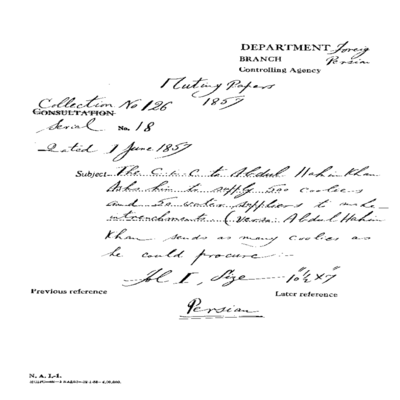 DEPARTMENT Foreig
BRANCH Persian
Controlling Agency
Mutiny Papers
Collection No 126 1857
CONSULTATION
Serial No. 18
Dated 1 June 1857
Subject The C in C to Abdul Hakim Khan
Asks him to supply 500 coolies
and 50 water suppliers to make
intrenchments (versa: Abdul Hakim
Khan sends as many coolies as
he could procure :-
fol I, Size 10½" x 7"
Previous reference Later reference
Persian
N. A. I.-1.